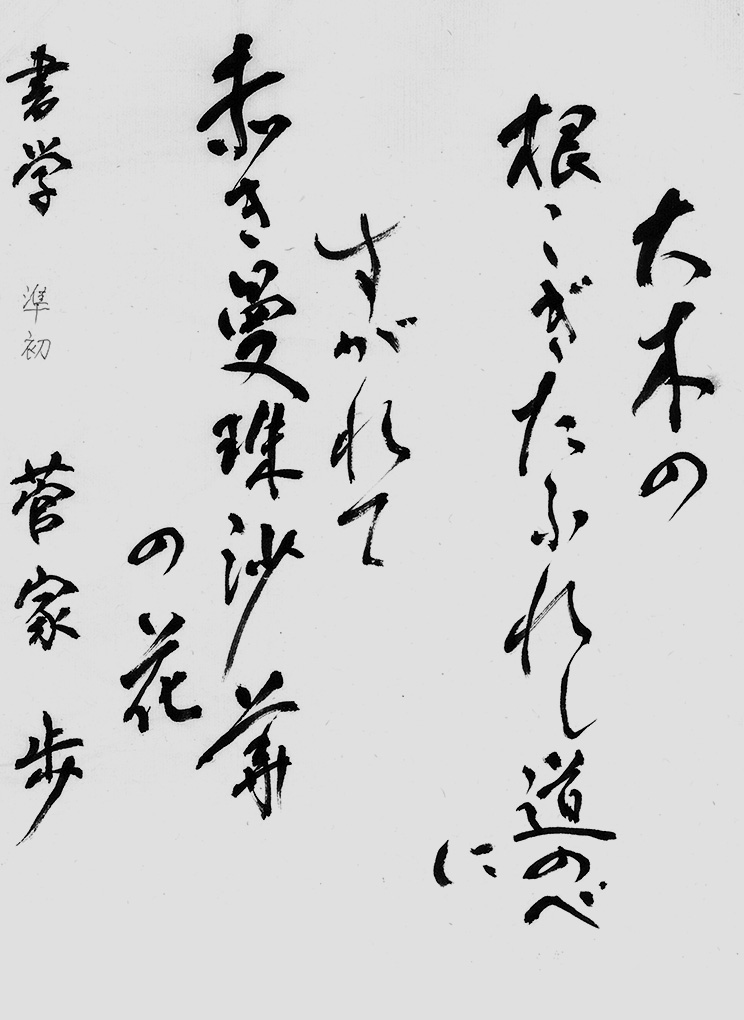 大木の
根こぎたふれし道のべ
に
すがれて
赤き曼珠沙華
の花
書学 準初 菅家 歩